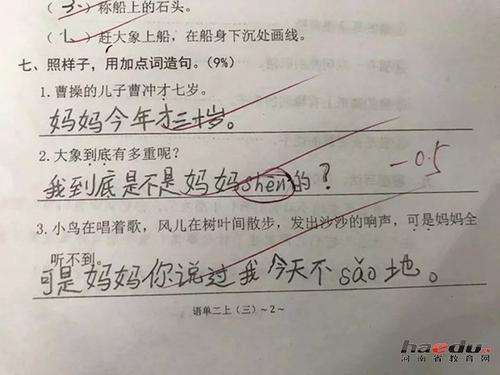 (三)称船上的石头。
(一)赶大象上船，在船身下沉处画线。
七、照样子，用加点词造句。(9%)
1.曹操的儿子曹冲才七岁。
妈妈今年才三十岁。
2.大象到底有多重呢？
我到底是不是妈妈shēn的？
-0.5
3.小鸟在唱着歌，风儿在树叶间散步，发出沙沙的响声，可是妈妈全
听不到。
可是妈妈你说过我今天不sǎo地。
语单二上(三)~2~
haedu.cn
河南省教育网